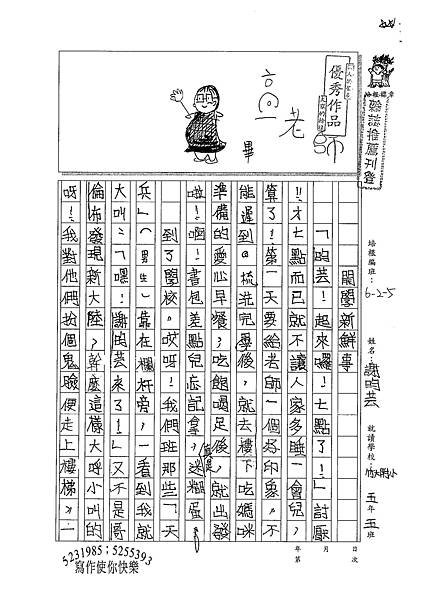 優秀作品
高老師
畢
聯誌推薦刊登
培根編班:6-2-5
姓名:謝昀芸
就讀學校:
五年五班
開學新鮮事
「昀芸!起來囉!七點了!」討厭
!!才七點而已就不讓人家多睡一會兒,
算了!第一天要給老師一個好印象,不
能遲到。梳洗完畢後,就去樓下吃媽咪
準備的愛心早餐,吃飽喝足後,就出發
啦!啊!書包差點兒忘記拿,真是迷糊蛋!
到了學校。哎呀!我們班那些「天
兵」(男生)靠在欄杆旁,一看到我就
大叫:「嘿!謝昀芸來了!」又不是哥
倫布發現新大陸?幹麼這樣大呼小叫的
呀!我對他們扮個鬼臉便走上樓梯。一
年 月 日
第 次
5231985;5255393
寫作使你快樂